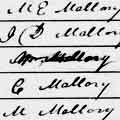 M E Mallory
J D Mallory
Mallory
C Mallory
M Mallory